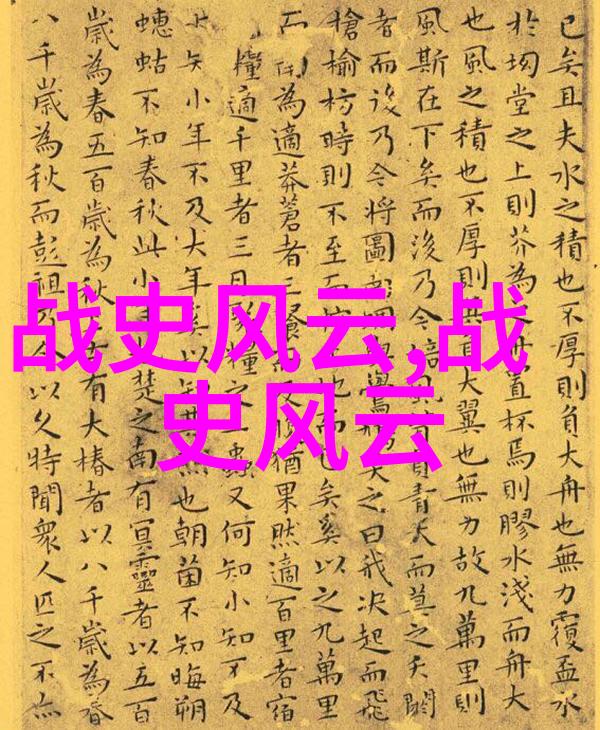 已矣且夫水之積也不厚則負大舟也無力覆盃水
於坳堂之上則芥為置杯焉則膠水淺而舟大
也風之積也不厚則其負大翼也無力故九萬里則
風斯在下矣而後乃今培風背負青天而莫之夭閼
者而後乃今將圖南蜩與鷽鳩笑之曰我決起而飛
槍榆枋時則不至而也而已矣奚以之九萬里
而為適莽蒼者三飡反腹猶果然適百里者宿
糧適千里者三月糧之二蟲又何知小知不及
大知小年不及大年奚以知其然也朝菌不知晦朔
蟪蛄不知春秋此小年楚之南有冥靈者以五百
歲為春五百歲為秋古有大椿者以八千歲為春
八千歲為秋而彭祖乃今以久特聞衆人匹之不亦
战史风云,战
史风云